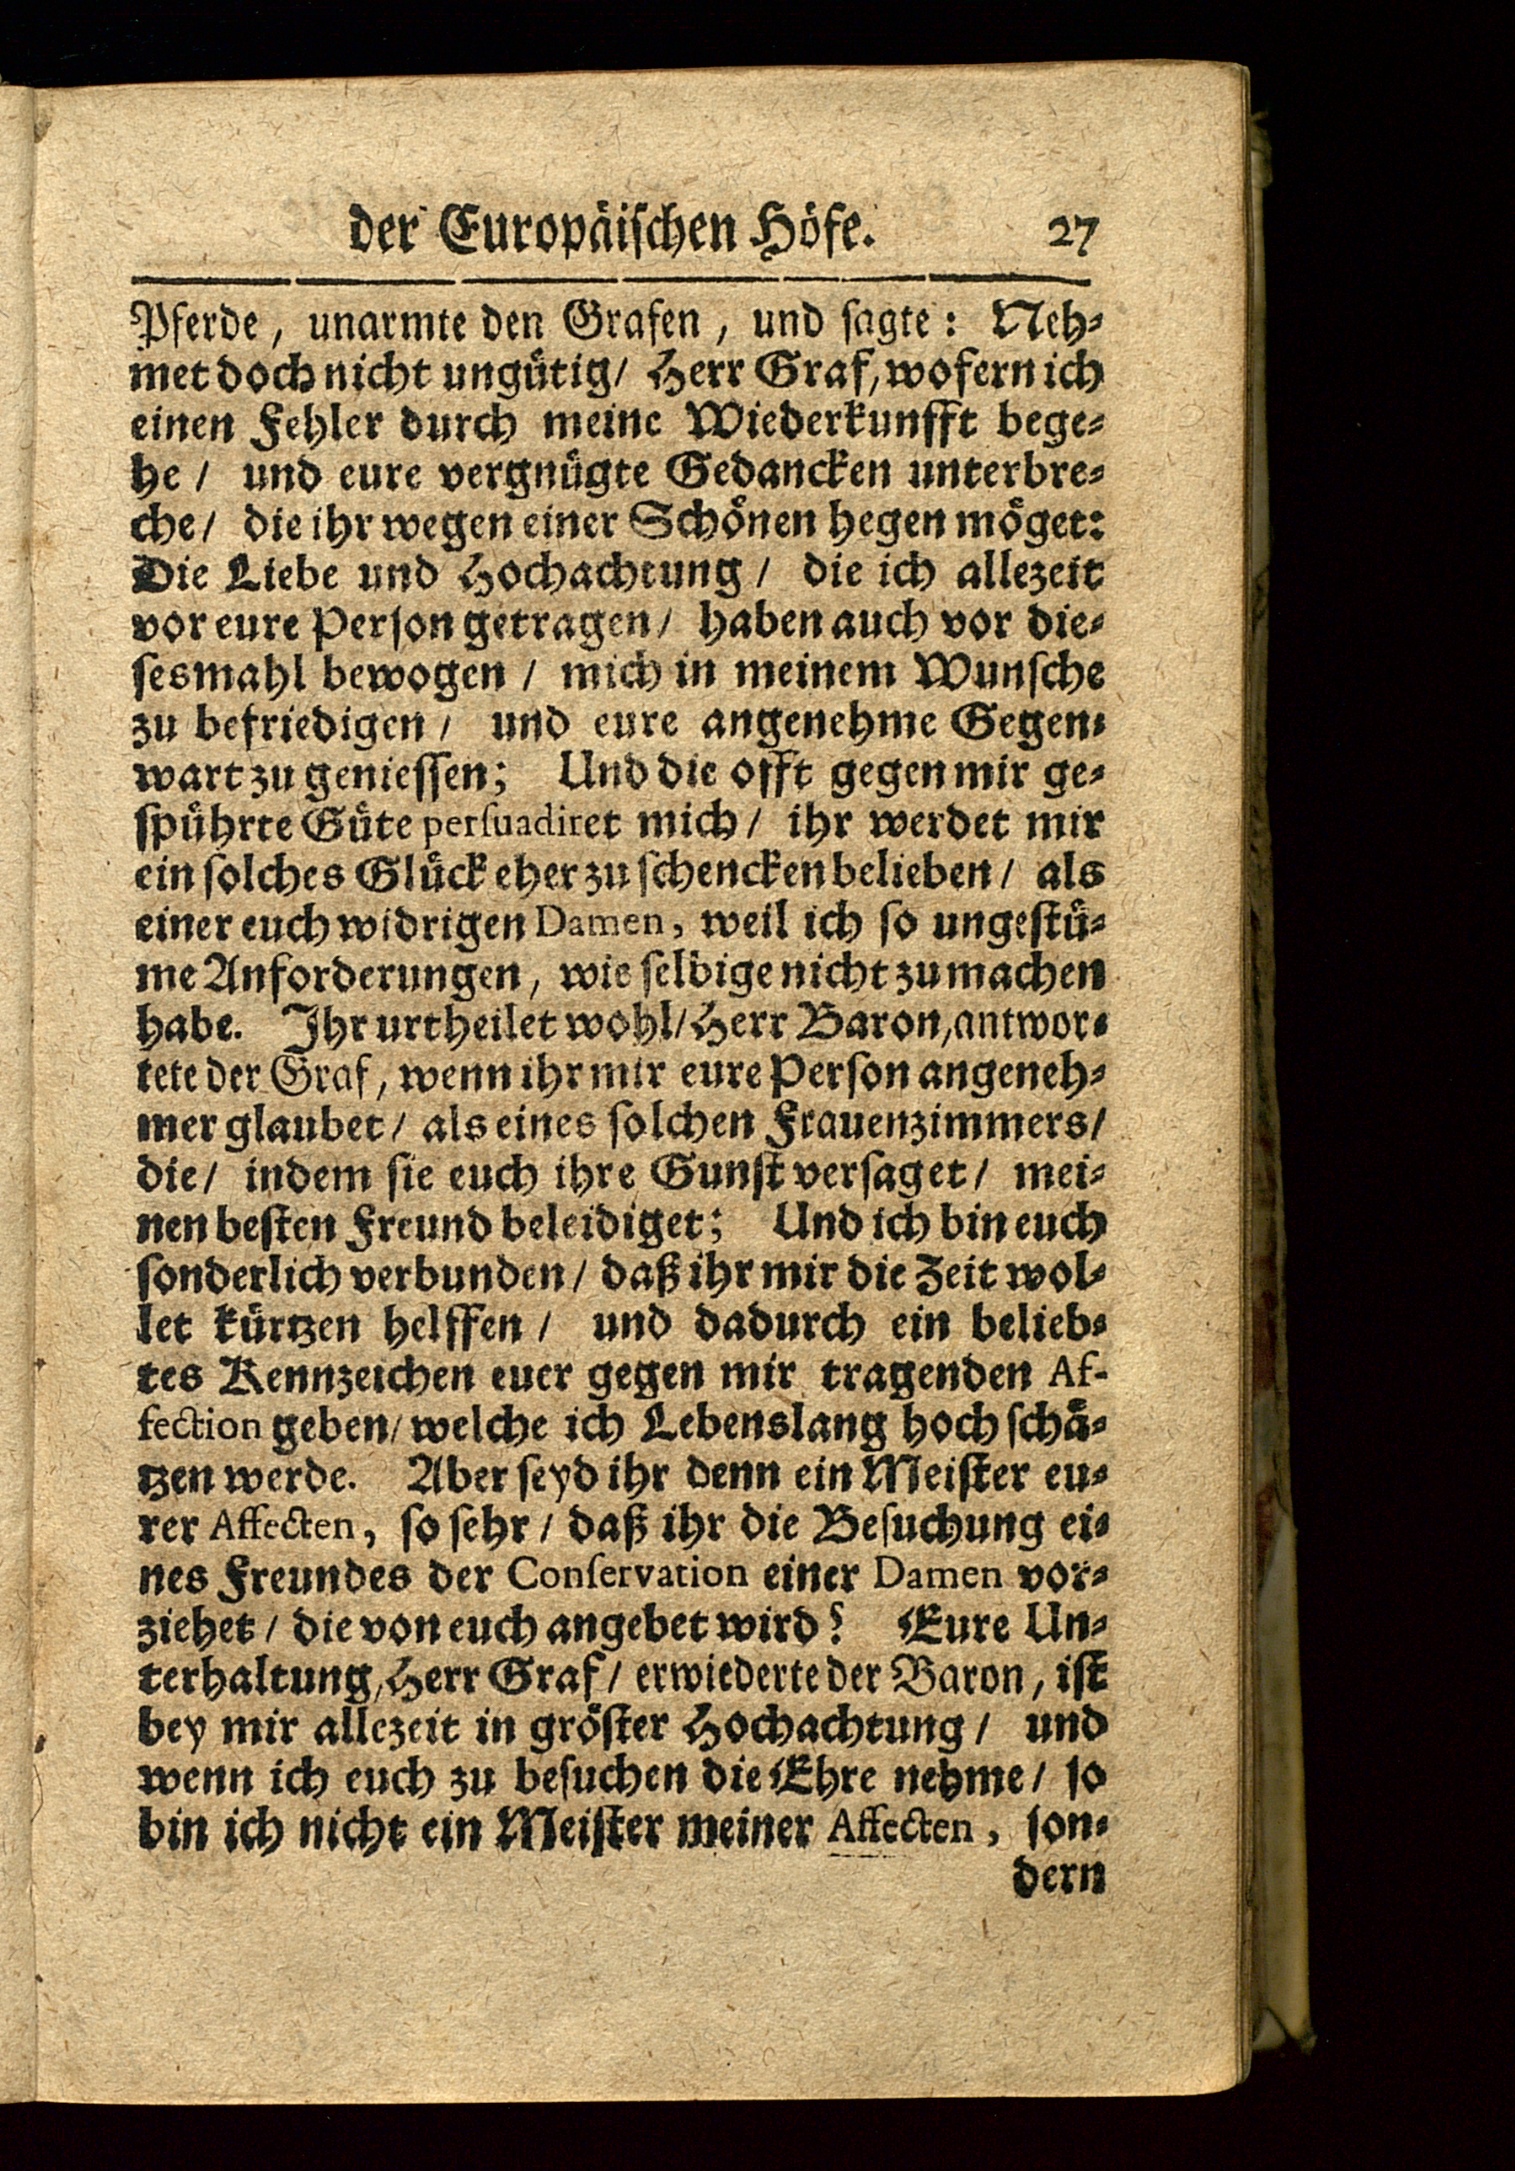 der Europäischen Höfe. 27
Pferde, unarmte den Grafen, und sagte: Neh-
met doch nicht ungütig/ Herr Graf, wofern ich
einen Fehler durch meine Wiederkunfft bege-
he/ und eure vergnügte Gedancken unterbre-
che/ die ihr wegen einer Schönen hegen möget:
Die Liebe und Hochachtung/ die ich allezeit
vor eure Person getragen/ haben auch vor die-
sesmahl bewogen/ mich in meinem Wunsche
zu befriedigen/ und eure angenehme Gegen-
wart zu geniessen; Und die offt gegen mir ge-
spührte Güte persuadiret mich/ ihr werdet mir
ein solches Glück eher zu schencken belieben/ als
einer euch widrigen Damen, weil ich so ungestü-
me Anforderungen, wie selbige nicht zu machen
habe. Ihr urtheilet wohl/ Herr Baron, antwor-
tete der Graf, wenn ihr mir eure Person angeneh-
mer glaubet/ als eines solchen Frauenzimmers/
die/ indem sie euch ihre Gunst versaget/ mei-
nen besten Freund beleidiget; Und ich bin euch
sonderlich verbunden/ daß ihr mir die Zeit wol-
let kürtzen helffen/ und dadurch ein belieb-
tes Kennzeichen euer gegen mir tragenden Af-
fection geben/ welche ich Lebenslang hoch schä-
tzen werde. Aber seyd ihr denn ein Meister eu-
rer Affecten, so sehr/ daß ihr die Besuchung ei-
nes Freundes der Conservation einer Damen vor-
ziehet/ die von euch angebet wird? Eure Un-
terhaltung, Herr Graf/ erwiederte der Baron, ist
bey mir allezeit in gröster Hochachtung/ und
wenn ich euch zu besuchen die Ehre nehme/ so
bin ich nicht ein Meister meiner Affecten, son-
dern